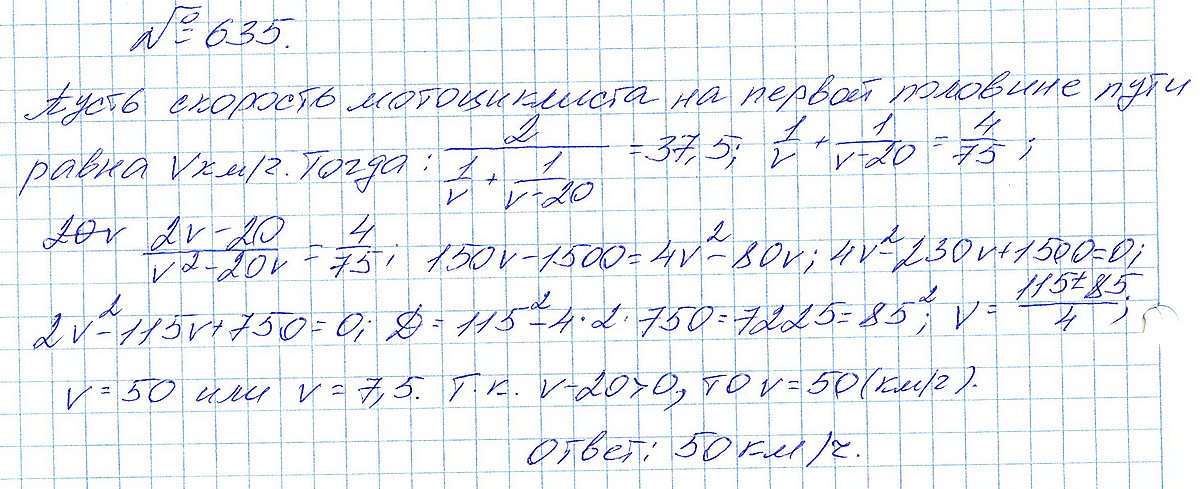 № 635.
Пусть скорость мотоциклиста на первой половине пути
равна V км/ч. Тогда: 2/(1/v + 1/(v-20)) = 37,5; 1/v + 1/(v-20) = 4/75;
20v (2v-20)/(v²-20v) = 4/75; 150v-1500=4v²-80v; 4v²-230v+1500=0;
2v²-115v+750=0; D=115²-4·2·750=7225=85²; V=(115±85)/4;
v=50 или v=7,5. Т.к. v-20>0, то v=50(км/ч).
Ответ: 50 км/ч.